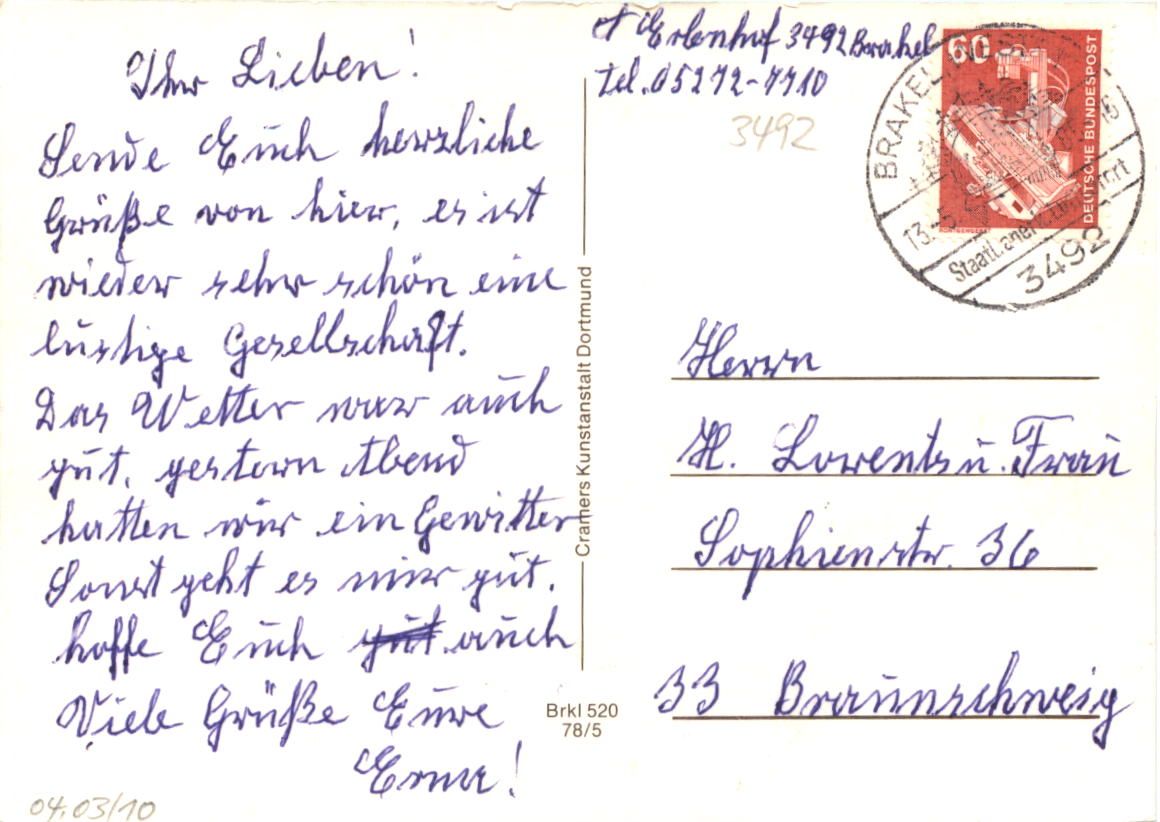 Ihr Lieben!
Sende Euch herzliche
Grüße von hier, es ist
wieder sehr schön eine
lustige Gesellschaft.
Das Wetter war auch
gut, gestern Abend
hatten wir ein Gewitter
Sonst geht es mir gut.
hoffe Euch gut auch
Viele Grüße Eure
Erna!
04.03/10
Cramers Kunstanstalt Dortmund
Brkl 520
78/5
Erlenhof 3492 Brakel
Tel. 05272-7710
3492
60
DEUTSCHE BUNDESPOST
BRAKEL
13.-5.
Staatl. anerk.
3492
Herrn
H. Lorentz u. Frau
Sophienstr. 36
33 Braunschweig